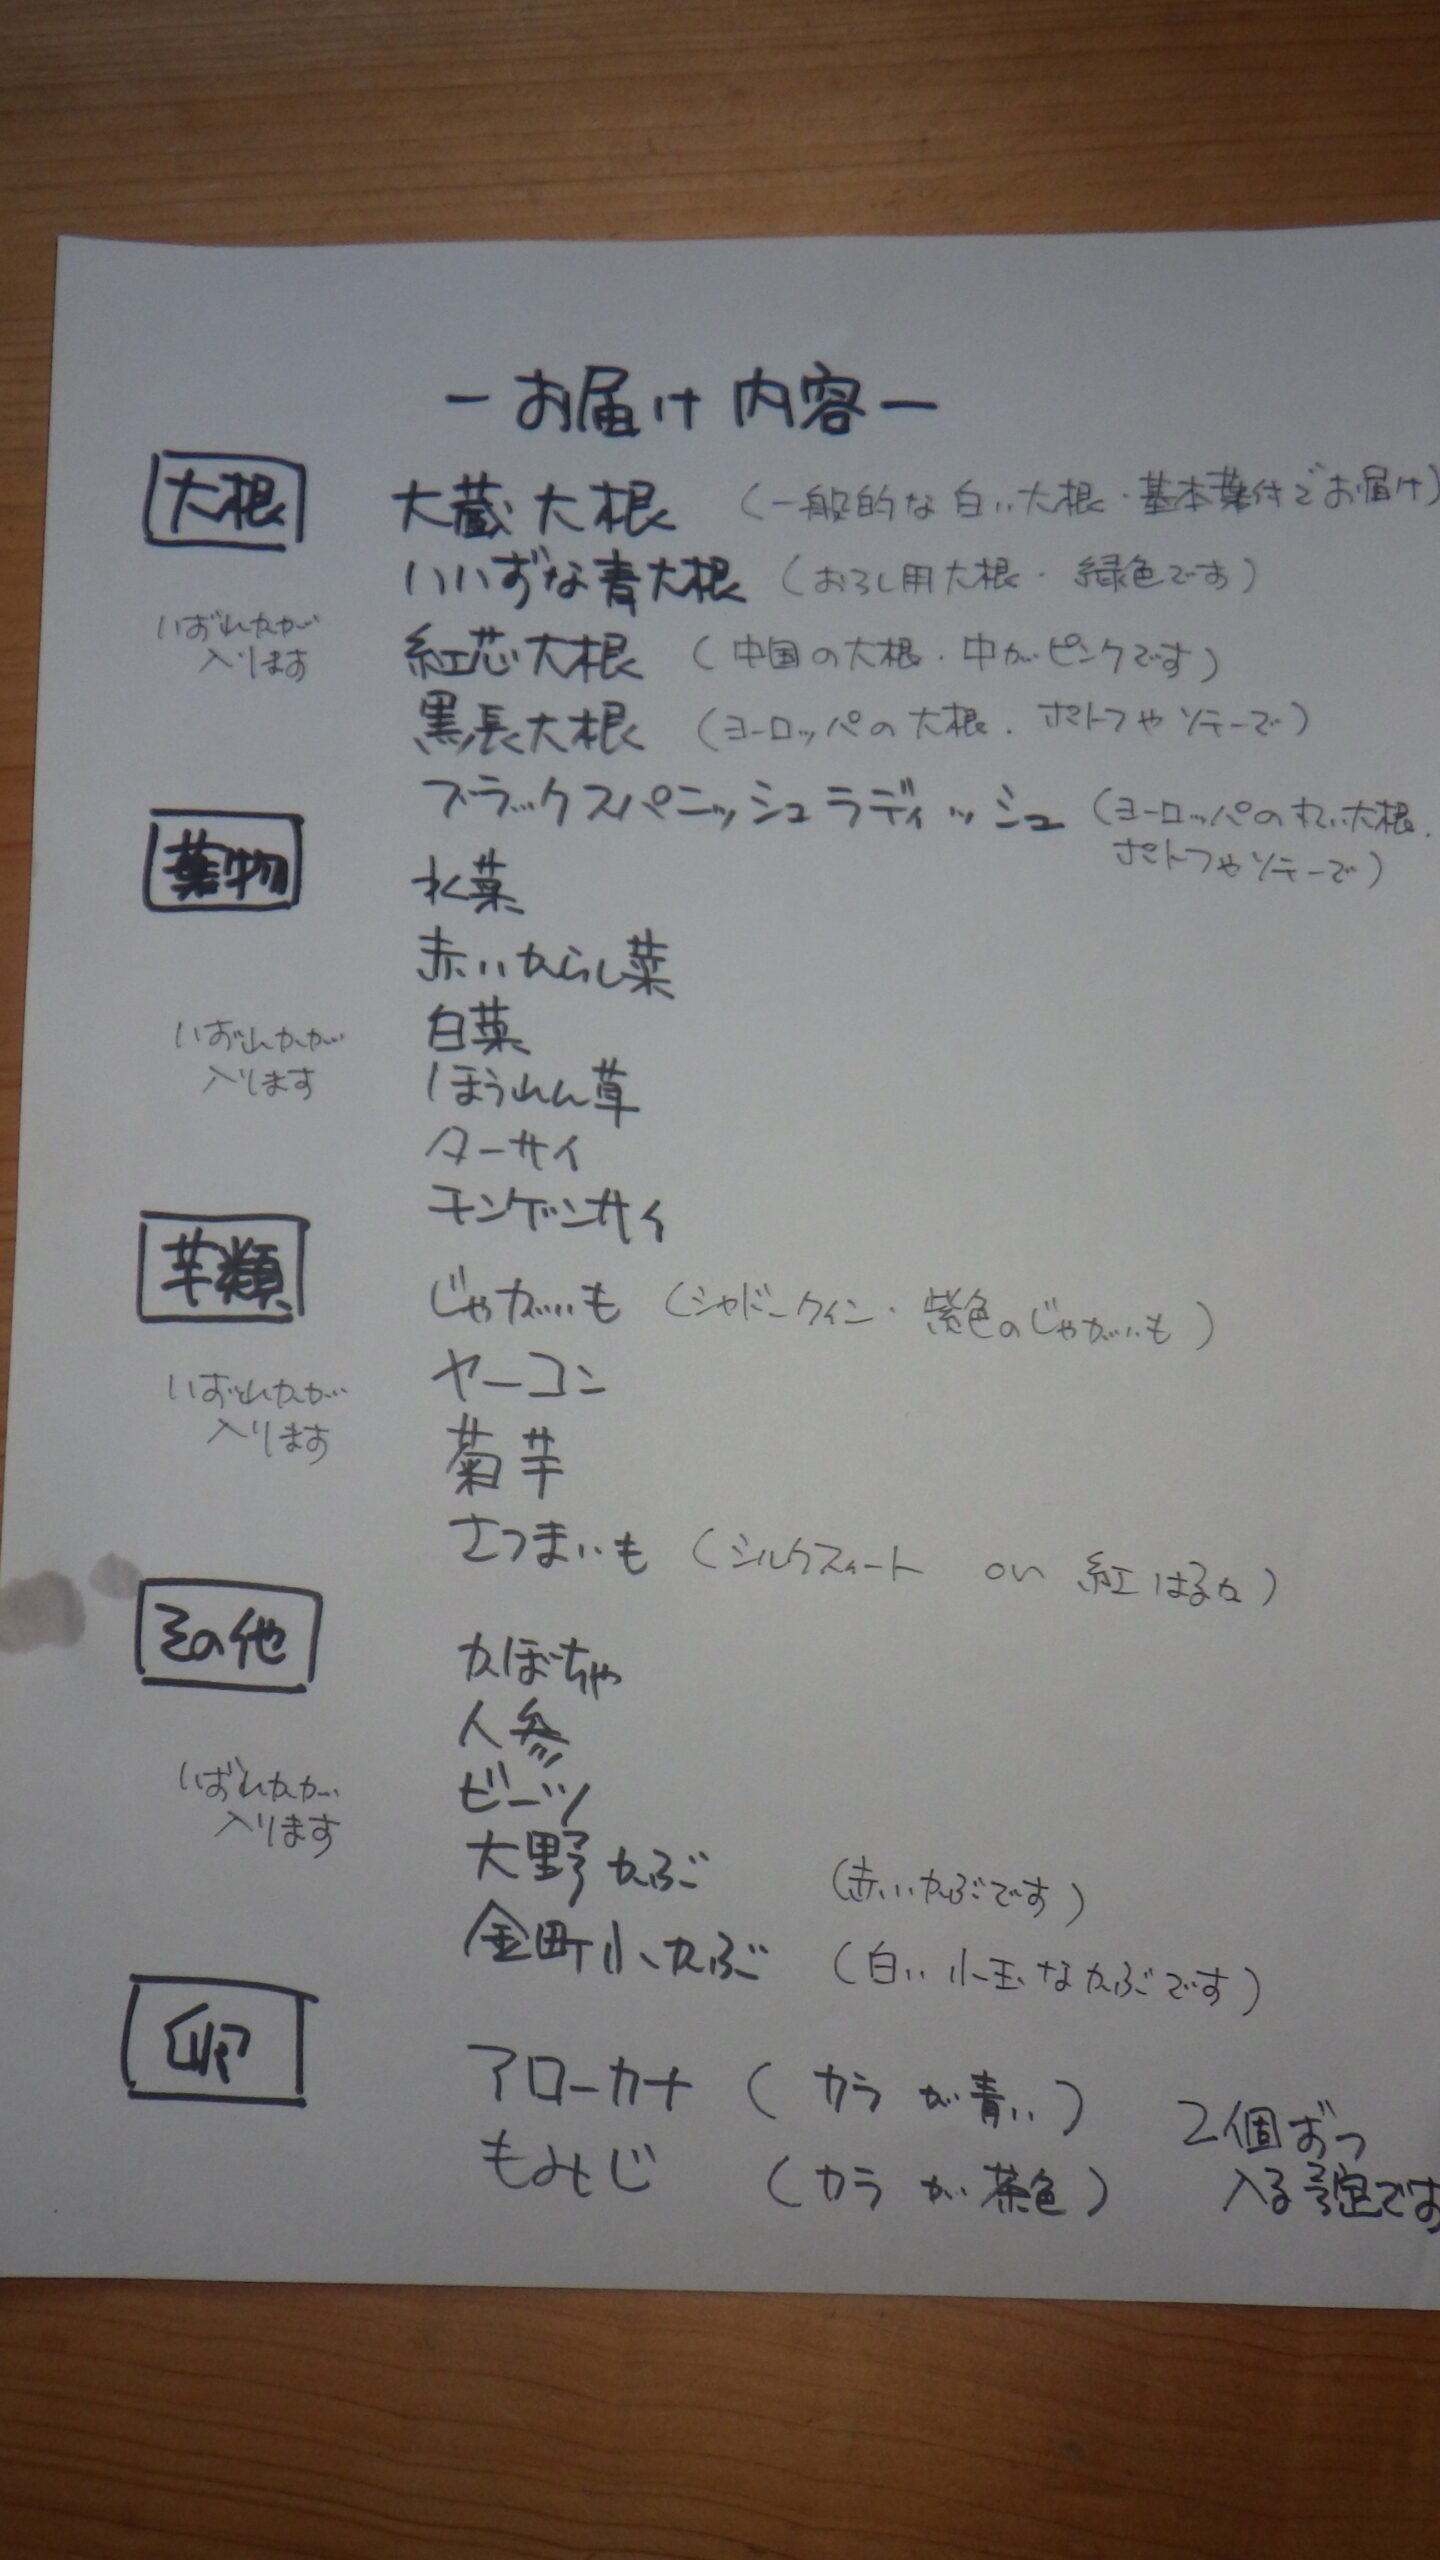 ーお届け内容ー
大根
大蔵大根 (一般的な白い大根・基本葉付でお届け)
いいずな青大根 (おろし用大根・緑色です)
いずれかが
入ります
紅芯大根 (中国の大根・中がピンクです)
黒長大根 (ヨーロッパの大根.ポトフやソテーで)
ブラックスパニッシュラディッシュ (ヨーロッパの丸い大根.
ポトフやソテーで)
葉物
水菜
赤いからし菜
白菜
いずれかが
入ります
ほうれん草
ターサイ
チンゲンサイ
芋類
じゃがいも (シャドークイン・紫色のじゃがいも)
ヤーコン
いずれかが
入ります
菊芋
さつまいも (シルクスィート or 紅はるか)
その他
かぼちゃ
人参
ビーツ
いずれかが
入ります
大野かぶ (赤いかぶです)
金町小かぶ (白い小玉なかぶです)
卵
アローカナ (カラが青い)
もみじ (カラが茶色)
2個ずつ
入る予定です